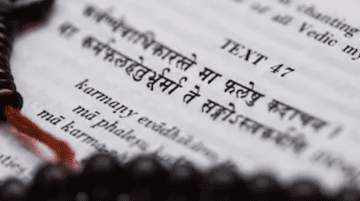 chanting
of all Vedic my
TEXT 47
कर्मण्येवाधिकारस्ते मा फलेषु कदाचन ।
मा कर्मफलहेतुर्भूर्मा ते सङ्गोऽस्त्वकर्मणि
karmany evādhikāras
mā phaleṣu
mā karma
ties